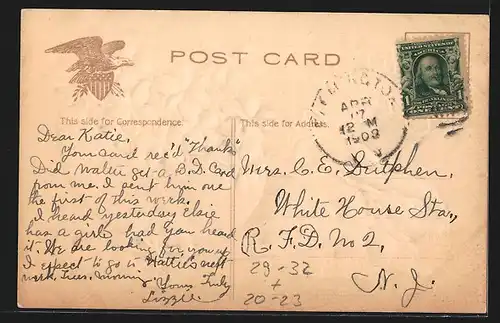 POST CARD
This side for Correspondence.
This side for Address.
UNITED STATES OF
AMERICA
APR
17
12 M
1908
Dear Katie,
Your card rec'd "Thanks"
Did Walter get a B.D. Card
from me. I sent him one
the first of this week.
I heard yesterday Elsie
has a girl had you heard
it. We are looking for you
I expect to go to Hattie's next
week, Tues. morning.
Yours Truly
Lizzie.
Mrs. C. E. Sutphen,
White House Sta.,
R. F. D. No 2,
N. J.
29-32
+
20-23